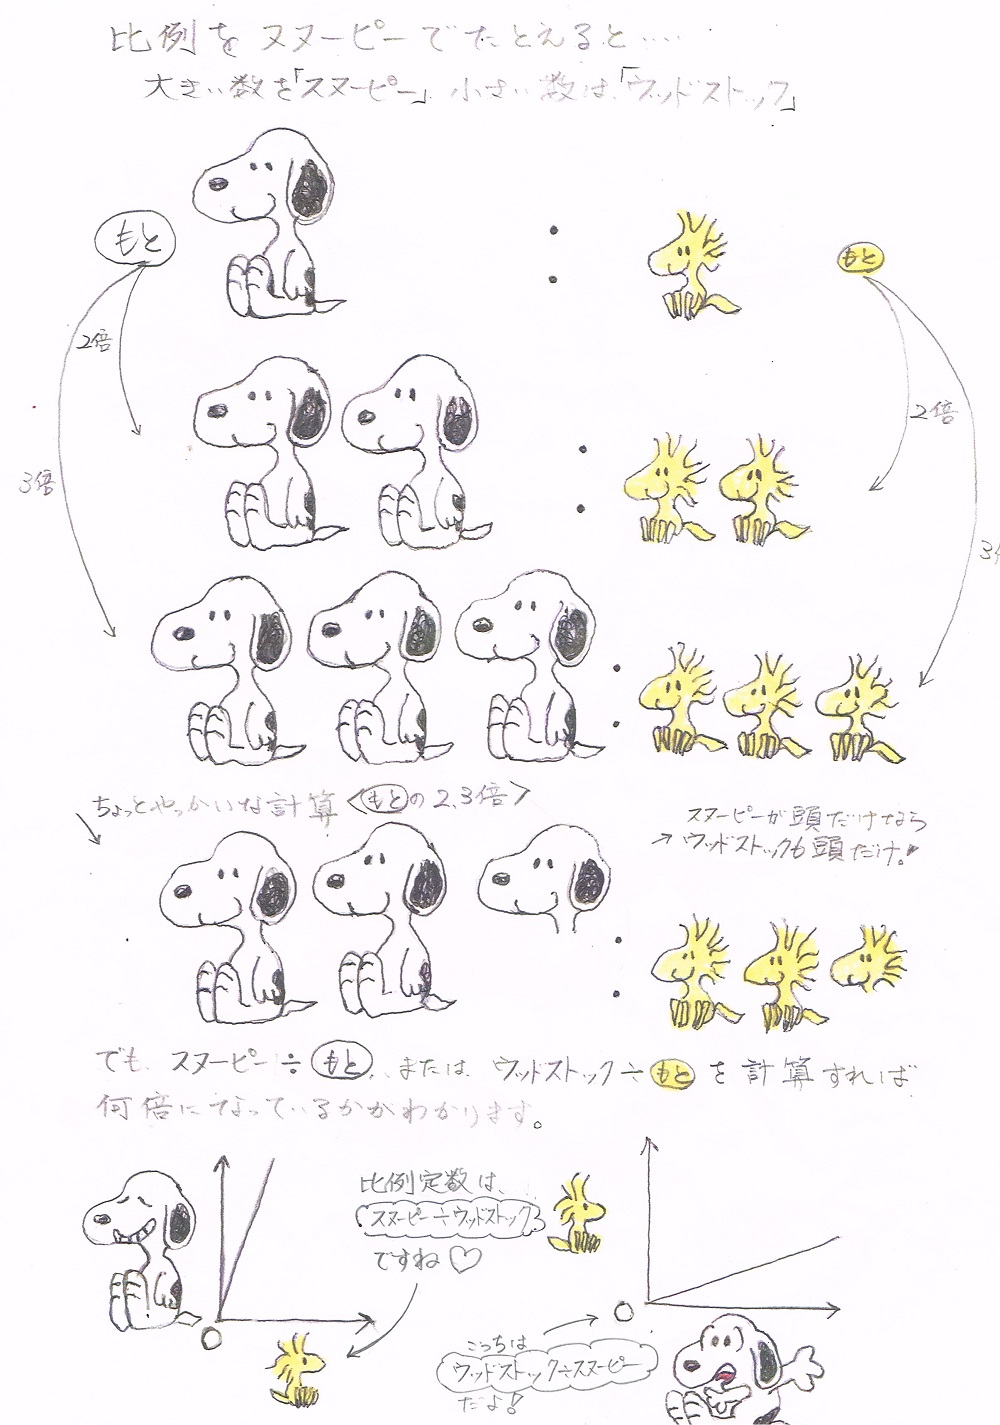 比例をスヌーピーでたとえると‥‥
大きい数を「スヌーピー」小さい数は、「ウッドストック」
もと
:
もと
2倍
3倍
2倍
3
:
:
ちょっとやっかいな計算<もとの2.3倍>
スヌーピーが頭だけなら
→ウッドストックも頭だけ。
:
でも、スヌーピー÷もと、または、ウッドストック÷もとを計算すれば
何倍になっているかがわかります。
比例定数は、
スヌーピー÷ウッドストック
ですね♡
O
O
こっちは
ウッドストック÷スヌーピー
だよ!